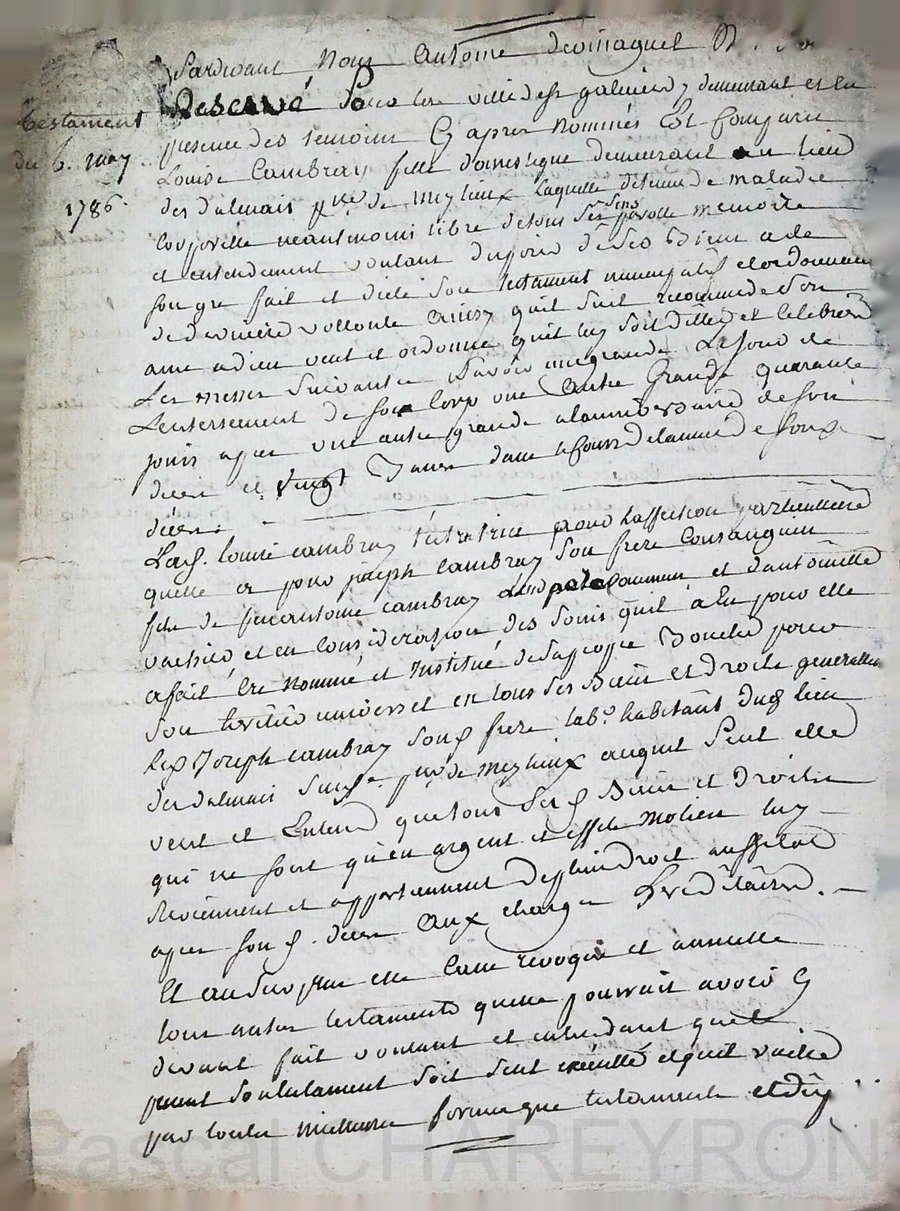 Pardevant Nous Antoine
Testament
du 6. may
1786
Reservé pour la ville de st galmier y demeurant et en
presence des temoins cy apres Nommés Est Comparu
Louise Cambray fille domestique demeurant au lieu
des dalmais psse. de Meylieux laquelle detenue de maladie
Corporelle neantmoins libre de tous ses sens parolle memoire
et entendement voulant disposer de ses Biens a de
son gre fait et dicté son testament nuncupatif et ordonnance
de derniere vollonté Ainsy quil suit recommande son
ame a dieu veut et ordonne quil luy soit dittes et celebrées
Les messes suivantes savoir une grande Le jour de
Lenterrement de son Corps une Autre Grande quarante
jours apres une autre grande a lanniversaire de son
deces et vingt Basses dans le Cours de lannée de son
déces.
Lad. Louise cambray testatrice pour Laffection particulière
quelle a pour joseph Cambray son frere Consanguin
fils de feu antoine cambray Leur pere commun et dantoinette
vachier et en Consideration des soins quil a Eu pour elle
a fait Cree Nommé et Institué de sa propre Bouche pour
son heritier universel et en tous ses Biens et droits generallement
led Joseph Cambray sond frere lab.r habitant dud lieu
des dalmais susd. psse de Meylieux auquel seul elle
veut et Entend que tous sesd Biens et Droits
qui ne sont qu'en argent et effets mobiliers luy
reviennent et appartiennent de plain droit aussitot
apres sond. deces Aux charges Hereditaires.
Et au surplus elle Casse revoque et annulle
tous autres testaments quelle pourrait avoir cy
devant fait voulant et entendant que le
present seulement soit seul executé et quil vaille
par toutes meilleures formes que testament et
Pascal CHAREYRON